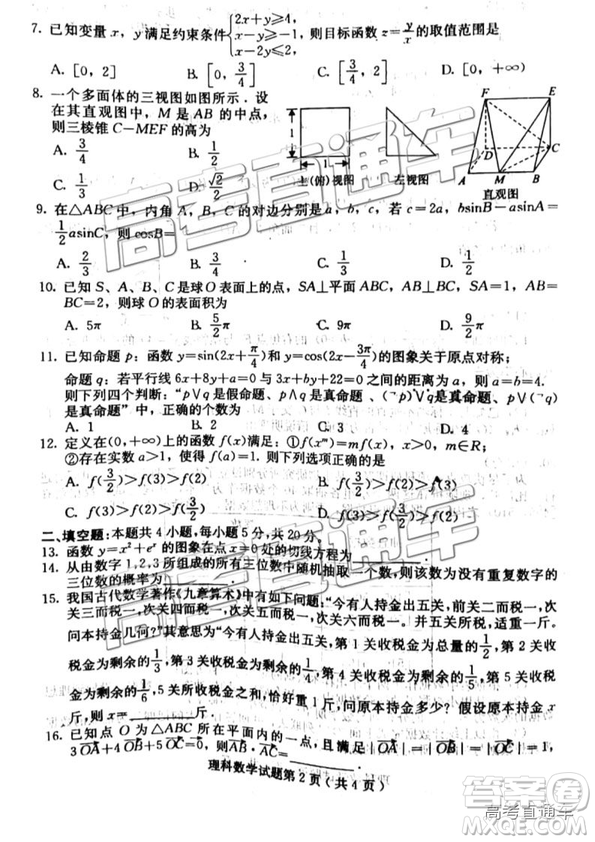 7. 已知变量 x, y 满足约束条件{2x+y≥4, x-y≥-1, x-2y≤2, 则目标函数 z=y/x 的取值范围是
A. [0, 2] B. [0, 3/4] C. [3/4, 2] D. [0, +∞)
8. 一个多面体的三视图如图所示. 设
在其直观图中, M 是 AB 的中点,
则三棱锥 C-MEF 的高为
A. 3/4 B. 1/2
C. 1/3 D. √2/2
1 1 主(俯)视图 左视图 直观图
F E D C A M B
9. 在△ABC 中, 内角 A、B、C 的对边分别是 a, b, c, 若 c=2a, bsinB-asinA=
1/2 asinC, 则 cosB=
A. 2/3 B. 3/4 C. 1/3 D. 1/2
10. 已知 S、A、B、C 是球 O 表面上的点, SA⊥平面 ABC, AB⊥BC, SA=1, AB=
BC=2, 则球 O 的表面积为
A. 5π B. 5/2 π C. 9π D. 9/2 π
11. 已知命题 p: 函数 y=sin(2x+π/4)和 y=cos(2x-3π/4)的图象关于原点对称;
命题 q: 若平行线 6x+8y+a=0 与 3x+4y+22=0 之间的距离为 a, 则 a=4.
则下列四个判断: “p∨q 是假命题、p∧q 是真命题、(¬p)∨q 是真命题、p∨(¬q)
是真命题”中, 正确的个数为
A. 1 B. 2 C. 3 D. 4
12. 定义在(0, +∞)上的函数 f(x)满足: ①f(x^m)=mf(x), x>0, m∈R;
②存在实数 a>1, 使得 f(a)=1. 则下列选项正确的是
A. f(3/2)>f(2)>f(3) B. f(3)>f(3/2)>f(2)
C. f(3)>f(2)>f(3/2) D. f(2)>f(3)>f(3/2)
二、填空题: 本题共 4 小题, 每小题 5 分, 共 20 分.
13. 函数 y=x²+eˣ 的图象在点 x=0 处的切线方程为
14. 从由数字 1、2、3 所组成的所有三位数中随机抽取一个数, 则该数为没有重复数字的
三位数的概率为
15. 我国古代数学著作《九章算术》中有如下问题: “今有人持金出五关, 前关二而税一,
次关三而税一, 次关四而税一, 次关五而税一, 次关六而税一. 并五关所税, 适重一斤.
问本持金几何?”其意思为“今有人持金出五关, 第 1 关收税金为总量的 1/2, 第 2 关收
税金为剩余的 1/3, 第 3 关收税金为剩余的 1/4, 第 4 关收税金为剩余的 1/5, 第 5 关收
税金为剩余的 1/6, 5 关所收税金之和, 恰好重 1 斤, 问原本持金多少? 假设原本持金 x
斤, 则 x= 斤.
16. 已知点 O 为△ABC 所在平面内的一点, 且满足 |OA|=|OB|=|OC|=1,
3OA+4OB+5OC=0, 则 AB·AC=
理科数学试题第 2 页(共 4 页)
高考直通车
高考直通车
高考直通车
答案圈
MXQE.COM